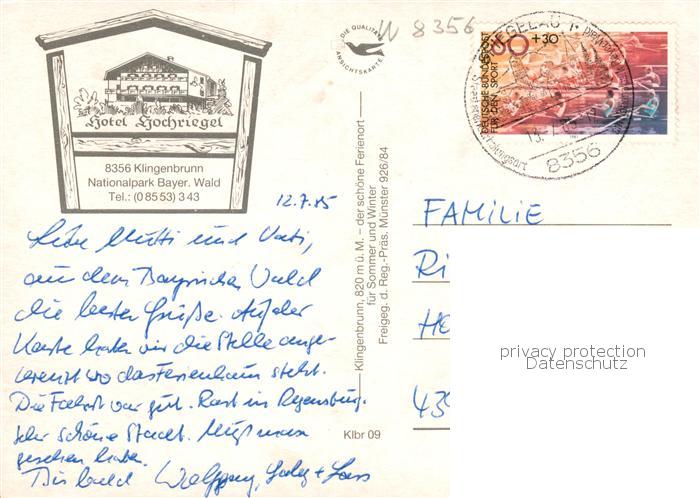 W 8356
DIE QUALITÄTS
ANSICHTSKARTE
60 +30
DEUTSCHE BUNDESPOST
FÜR DEN SPORT
SPIEGELAU 1
8356
Hotel Hochriegel
8356 Klingenbrunn
Nationalpark Bayer. Wald
Tel.: (0 85 53) 3 43
12.7.85
Liebe Mutti und Vati,
aus dem Bayrischen Wald
die besten Grüße. Auf der
Karte haben wir die Stelle ange-
kreuzt wo das Ferienhaus steht.
Die Fahrt war gut. Rast in Regensburg.
Sehr schöne Stadt. Muß man
gesehen haben.
Bis bald Wolfgang, +
Klingenbrunn, 820 m ü. M. – der schöne Ferienort
für Sommer und Winter
Freigeg. d. Reg.-Präs. Münster 926/84
Klbr 09
FAMILIE
RI
HO
439
privacy protection
Datenschutz